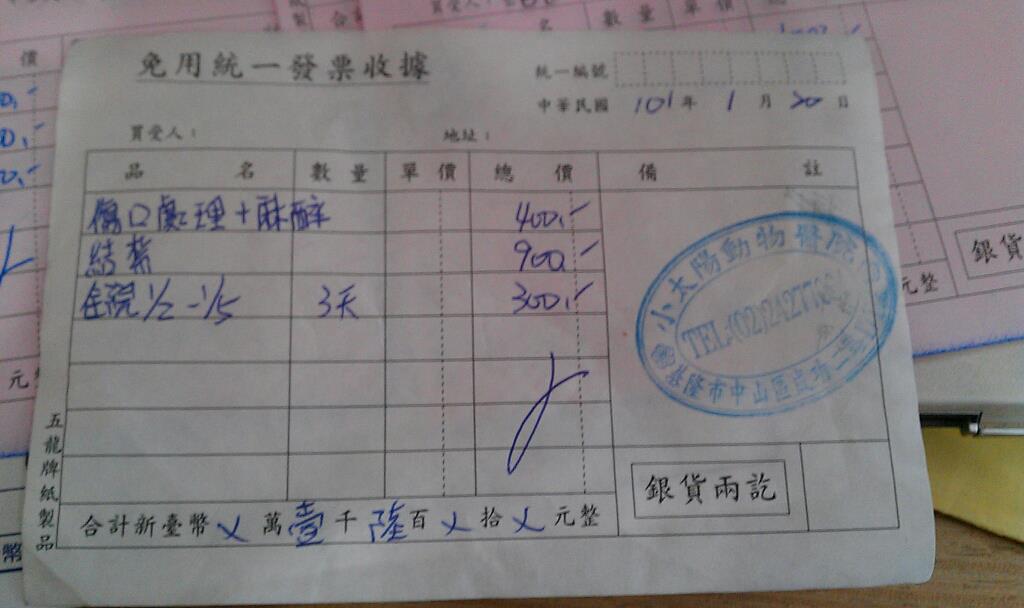 免用統一發票收據
統一編號
中華民國 101年 1月 20日
買受人： 地址：
品名 數量 單價 總價 備註
傷口處理+麻醉 400.-
結紮 900.-
住院 1/2 - 1/5 3天 300.-
小太陽動物醫院
TEL:(02)2427
基隆市中山區成功二
銀貨兩訖
合計新臺幣 ㄨ 萬 壹 千 陸 百 ㄨ 拾 ㄨ 元整
五龍牌紙製品
價
元
幣
數量 單價
買受人：
名
銀貨
元整